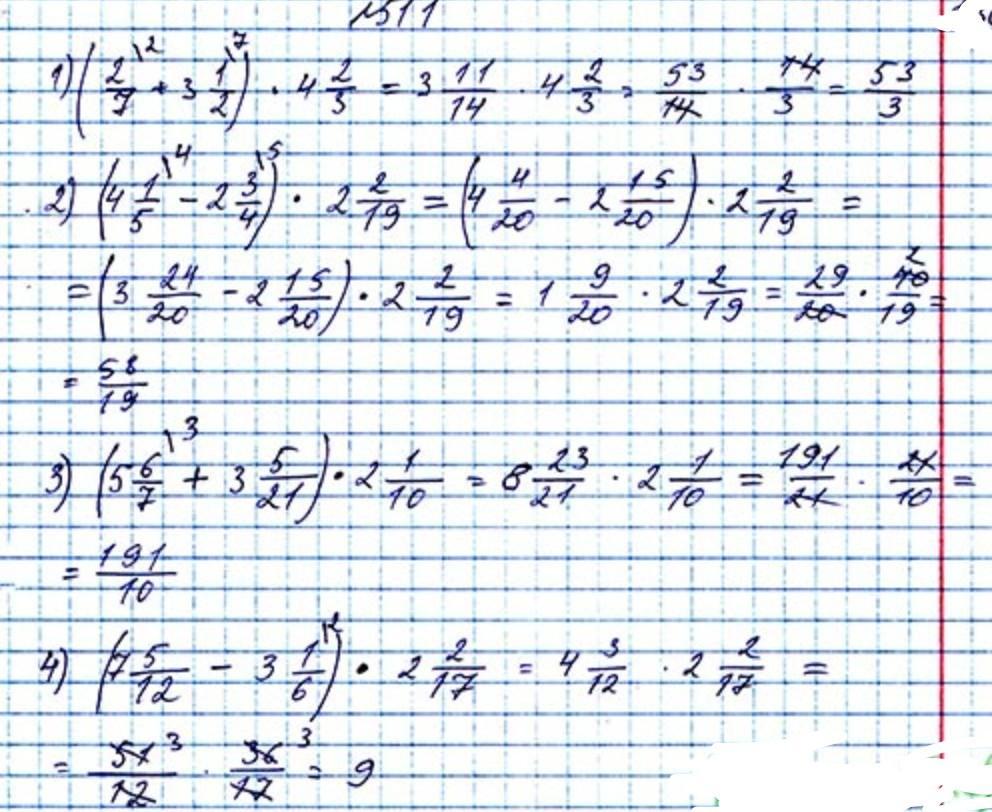 №511
1) (2/7\2 + 3 1/2\7) · 4 2/3 = 3 11/14 · 4 2/3 = 53/14 · 14/3 = 53/3
2) (4 1/5\4 − 2 3/4\5) · 2 2/19 = (4 4/20 − 2 15/20) · 2 2/19 =
= (3 24/20 − 2 15/20) · 2 2/19 = 1 9/20 · 2 2/19 = 29/20 · 40 2/19 =
= 58/19
3) (5 6/7\3 + 3 5/21) · 2 1/10 = 8 23/21 · 2 1/10 = 191/21 · 21/10 =
= 191/10
4) (7 5/12 − 3 1/6\2) · 2 2/17 = 4 3/12 · 2 2/17 =
= 51 3/12 · 36 3/17 = 9